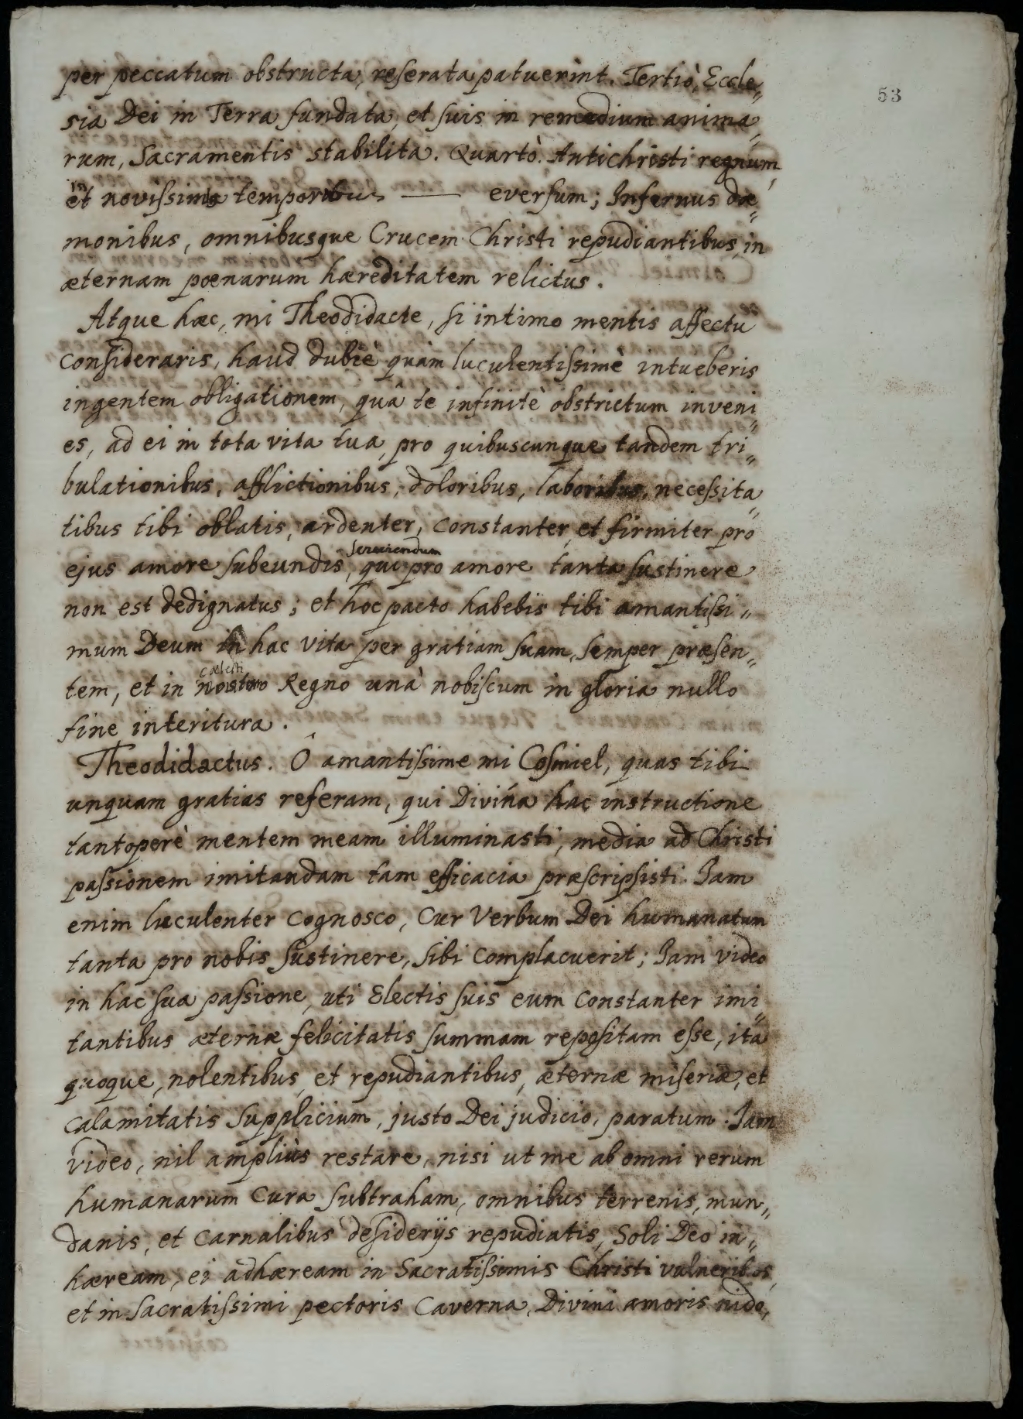 53
per peccatum obstructa, reserata patuerint. Tertiò, Eccle„
sia Dei in Terra fundata, et suis in remedium anima„
rum, Sacramentis stabilita. Quartò. Antichristi regnum
et novissimis temporibus —— eversum; Infernus dæ„
monibus, omnibusque Crucem Christi repudiantibus, in
æternam pœnarum hæreditatem relictus.
Atque hæc, mi Theodidacte, si intimo mentis affectu
consideraris, haud dubiè quàm luculentissimè intueberis
ingentem obligationem, quâ te infinitè obstrictum inveni„
es, ad ei in tota vita tua, pro quibuscunque tandem tri„
bulationibus, afflictionibus, doloribus, laboribus, necessita„
tibus tibi oblatis, ardenter, constanter, et firmiter pro
serviendum
ejus amore subeundis, qui pro amore tanta sustinere
non est dedignatus; et hoc pacto habebis tibi amantissi„
mum Deum in hac vita per gratiam suam, semper præsen„
cœlesti
tem, et in nostro Regno unà nobiscum in gloria nullo
fine interitura.
Theodidactus. Ô amantissime mi Cosmiel, quas tibi
unquam gratias referam, qui Divina hac instructione
tantoperè mentem meam illuminasti, media ad Christi
passionem imitandam tam efficacia præscripsisti. Iam
enim luculenter cognosco, cur Verbum Dei humanatum
tanta pro nobis sustinere, sibi complacuerit; Iam video
in hac sua passione, uti Electis suis eum constanter imi„
tantibus æternæ felicitatis summam repositam esse, ita
quoque, nolentibus, et repudiantibus, æternæ miseriæ, et
calamitatis supplicium, justo Dei judicio, paratum. Iam
video, nil ampliùs restare, nisi ut me ab omni rerum
humanarum cura subtraham, omnibus terrenis, mun„
danis, et carnalibus desiderijs repudiatis, Soli Deo in„
hæream, ei adhæream in Sacratissimis Christi vulneribus,
et in sacratissimi pectoris Caverna, Divini amoris nido,